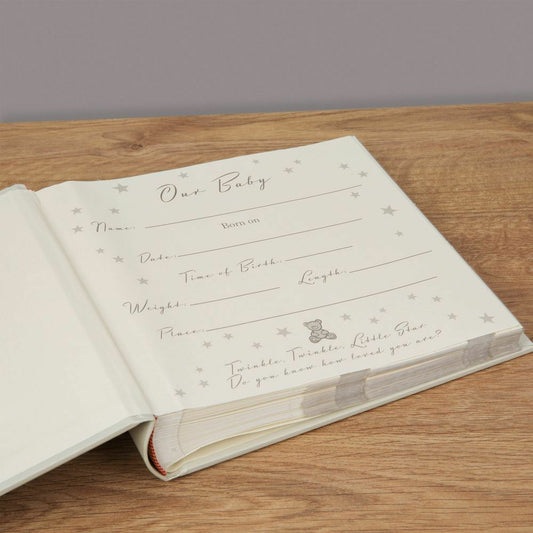 Our Baby
Name:
Born on
Date:
Time of Birth:
Weight: Length:
Place:
Twinkle, Twinkle, Little Star
Do you know how loved you are